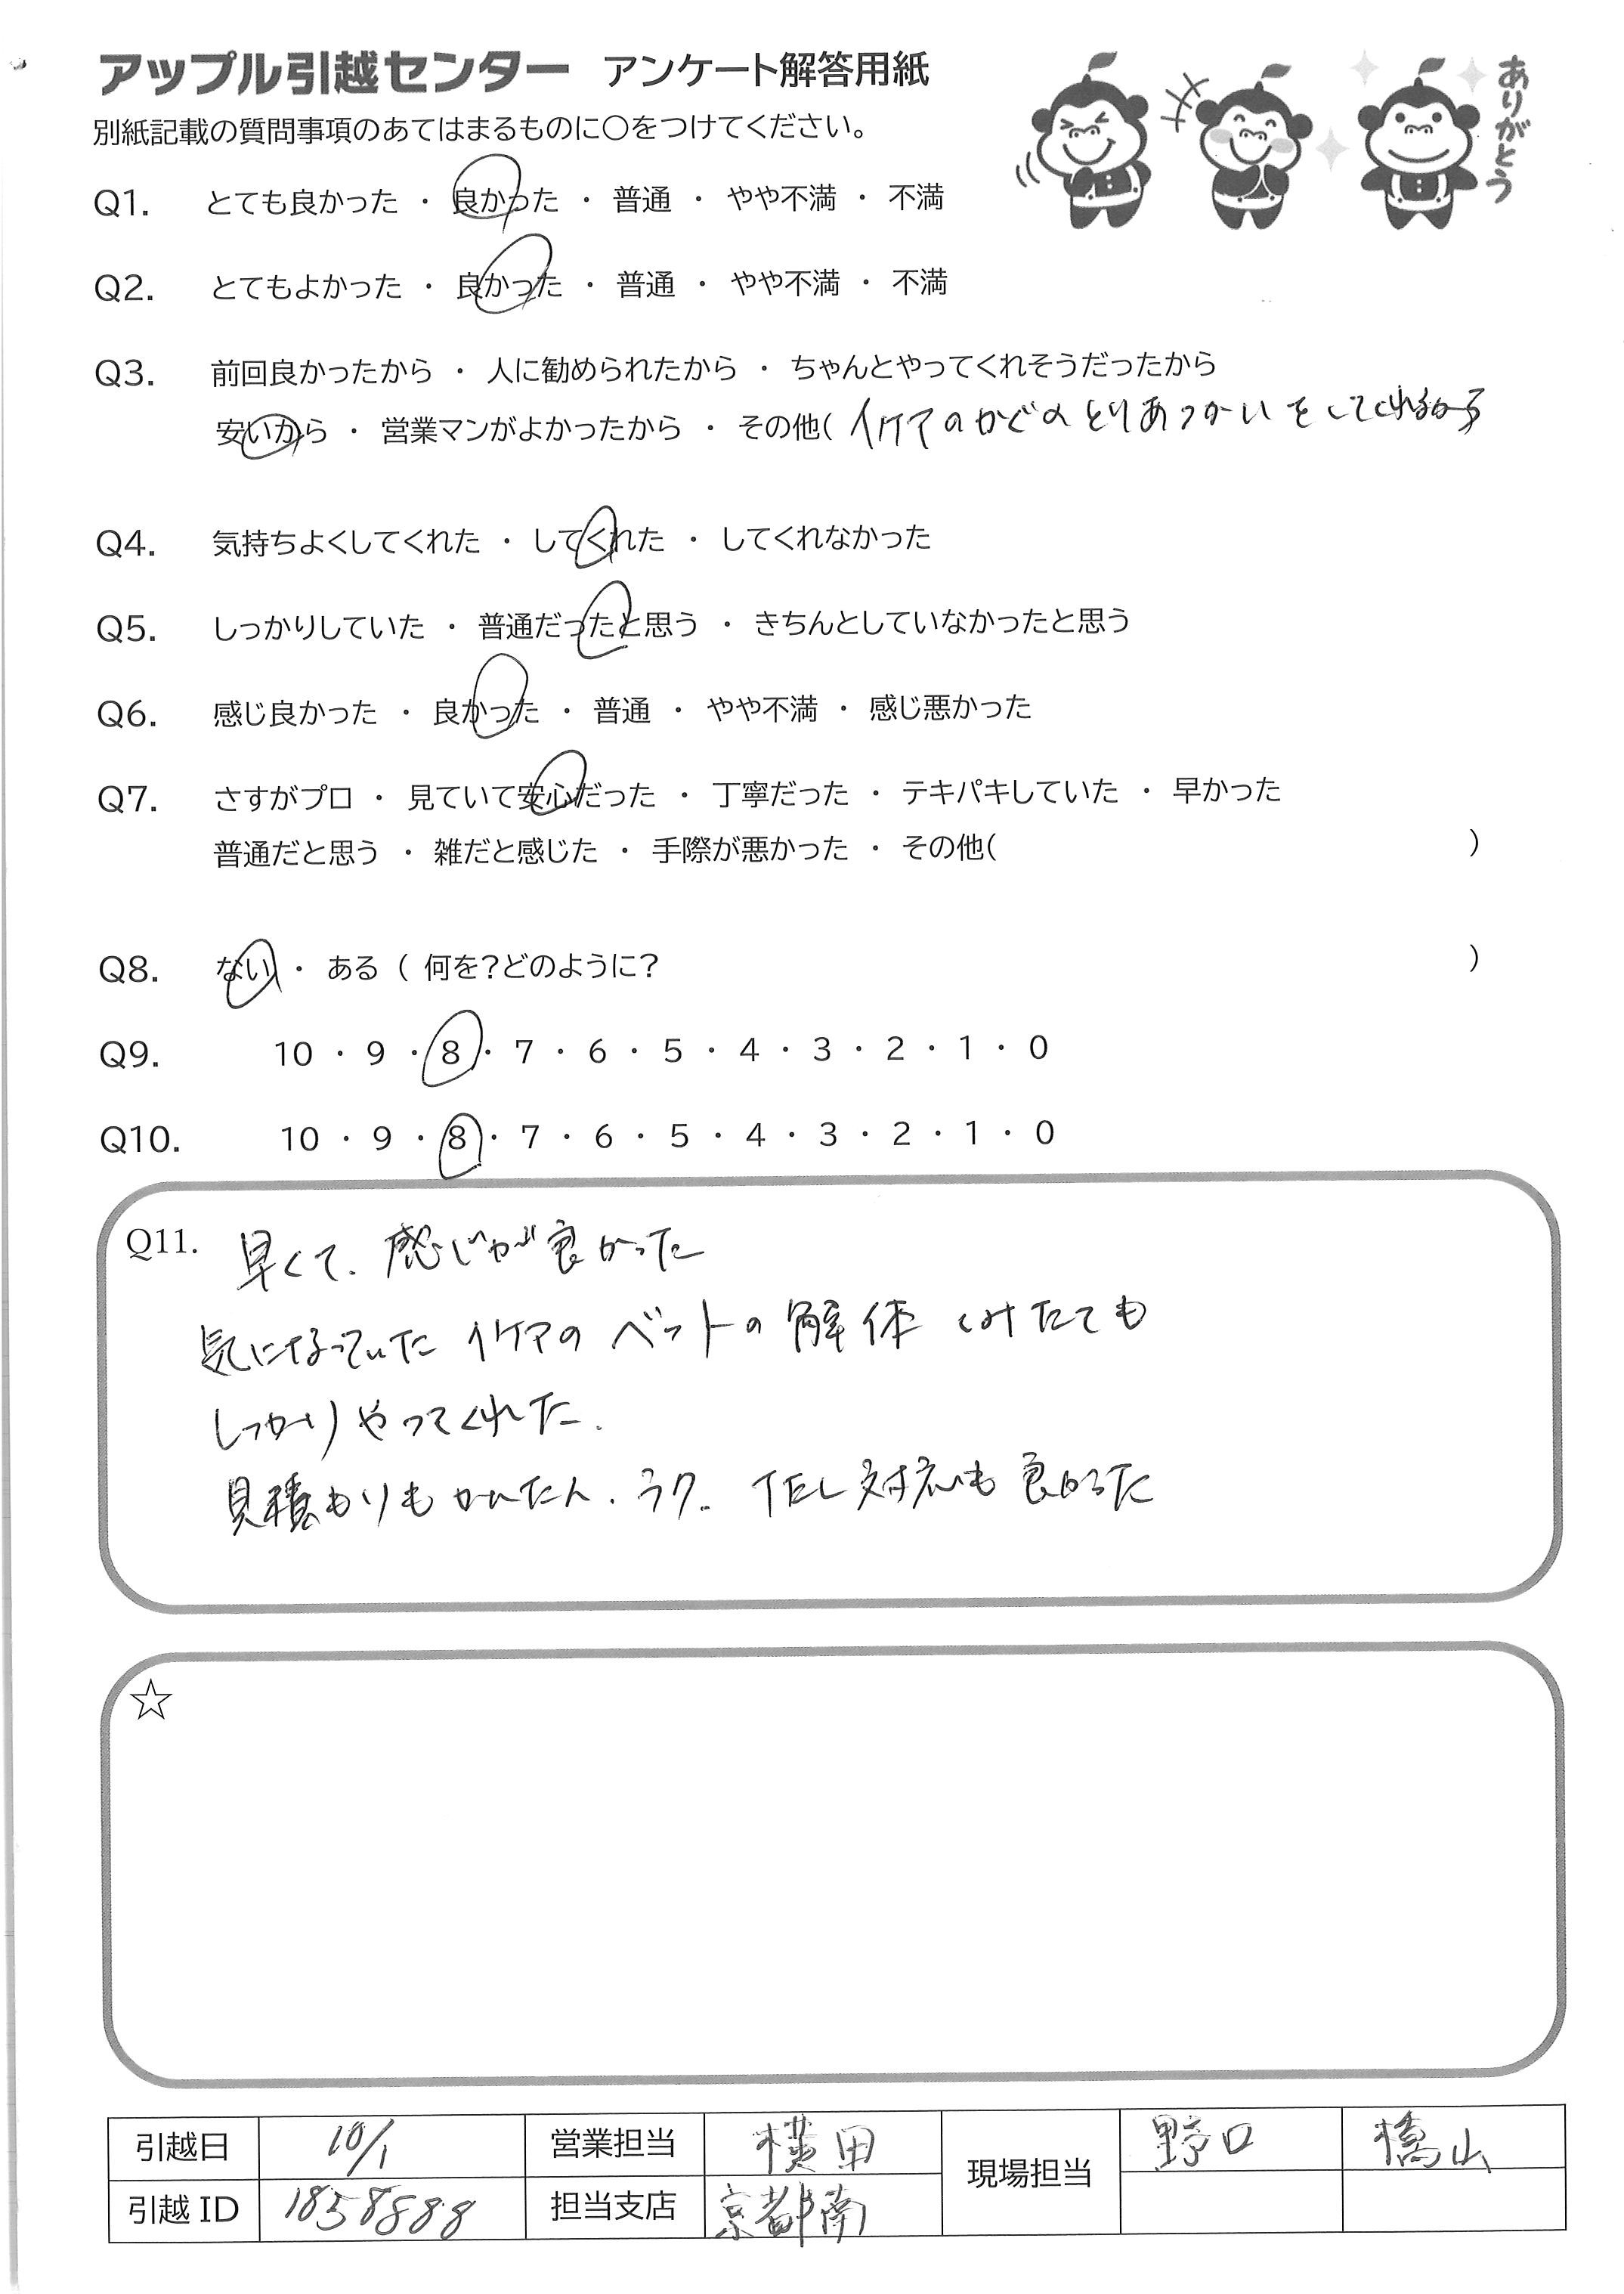 アップル引越センター アンケート解答用紙
ありがとう
別紙記載の質問事項のあてはまるものに○をつけてください。
Q1. とても良かった ・ 良かった ・ 普通 ・ やや不満 ・ 不満
Q2. とてもよかった ・ 良かった ・ 普通 ・ やや不満 ・ 不満
Q3. 前回良かったから ・ 人に勧められたから ・ ちゃんとやってくれそうだったから
安いから ・ 営業マンがよかったから ・ その他( イケアのかぐのとりあつかいをしてくれるから
Q4. 気持ちよくしてくれた ・ してくれた ・ してくれなかった
Q5. しっかりしていた ・ 普通だったと思う ・ きちんとしていなかったと思う
Q6. 感じ良かった ・ 良かった ・ 普通 ・ やや不満 ・ 感じ悪かった
Q7. さすがプロ ・ 見ていて安心だった ・ 丁寧だった ・ テキパキしていた ・ 早かった
普通だと思う ・ 雑だと感じた ・ 手際が悪かった ・ その他( )
Q8. ない ・ ある ( 何を?どのように? )
Q9. 10 ・ 9 ・ 8 ・ 7 ・ 6 ・ 5 ・ 4 ・ 3 ・ 2 ・ 1 ・ 0
Q10. 10 ・ 9 ・ 8 ・ 7 ・ 6 ・ 5 ・ 4 ・ 3 ・ 2 ・ 1 ・ 0
Q11. 早くて、感じが良かった
気になっていた イケアのベットの解体 くみたても
しっかりやってくれた.
見積もりもかんたん.ラク. TEL対応も良かった
☆
引越日 10/1 営業担当 横田 現場担当 野口 橋山
引越ID 1858888 担当支店 京都南